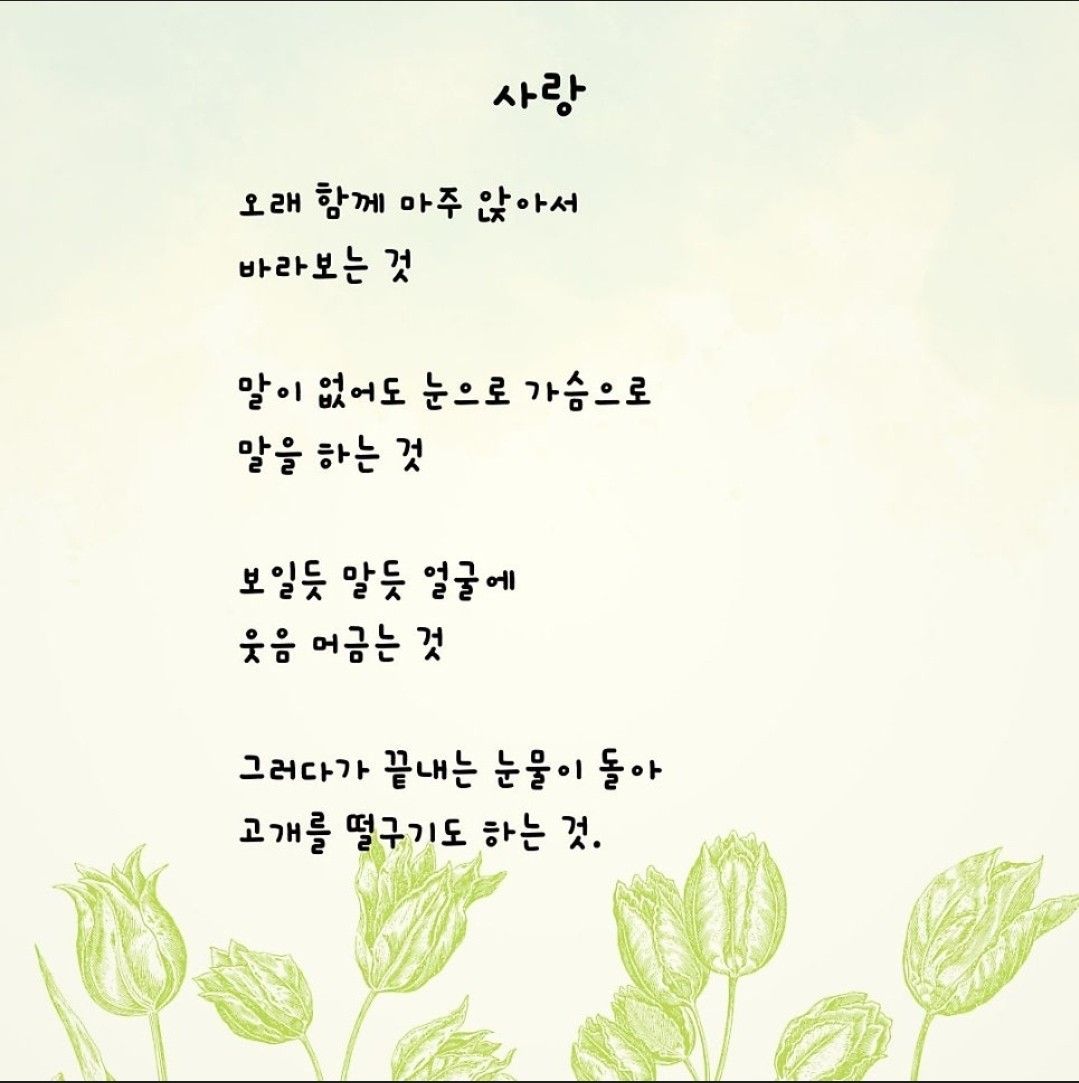 사랑
오래 함께 마주 앉아서
바라보는 것
말이 없어도 눈으로 가슴으로
말을 하는 것
보일듯 말듯 얼굴에
웃음 머금는 것
그러다가 끝내는 눈물이 돌아
고개를 떨구기도 하는 것.